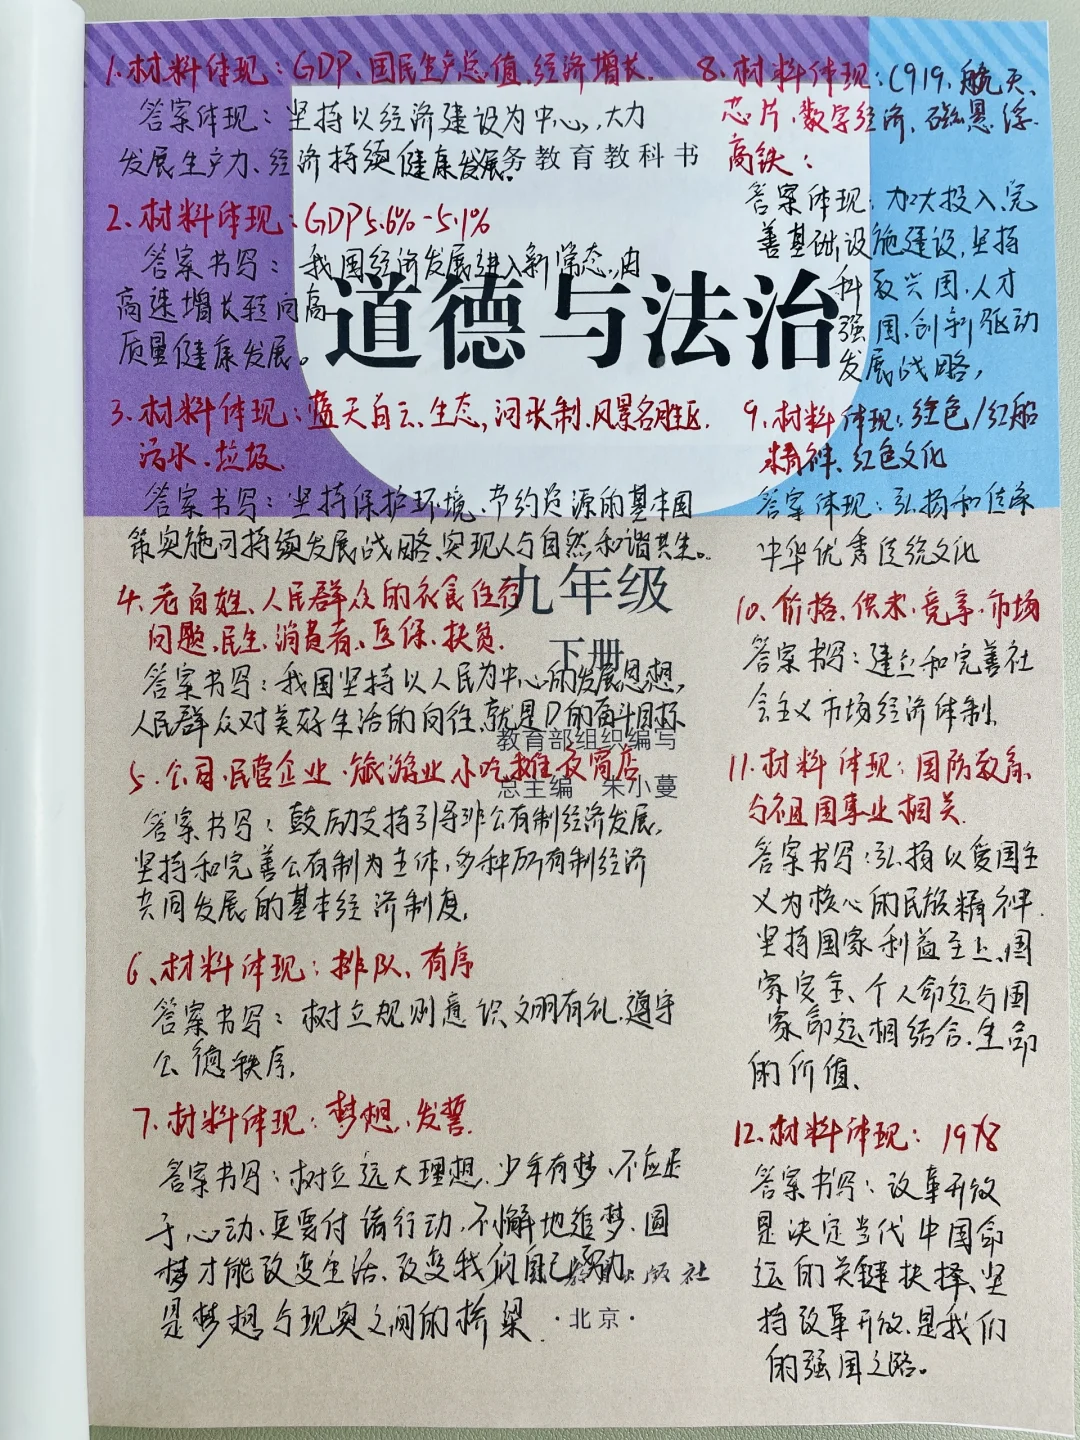 1.材料体现：GDP、国民生产总值.经济增长.
答案体现：坚持以经济建设为中心,大力
发展生产力、经济持续健康发展.
2.材料体现：GDP5.6%-5.1%
答案书写：我国经济发展进入新常态,由
高速增长转向高
质量健康发展。
3.材料体现：蓝天白云、生态,河长制.风景名胜区.
污水.垃圾.
答案书写：坚持保护环境、节约资源的基本国
策实施可持续发展战略、实现人与自然和谐共生。
4、老百姓、人民群众的衣食住行
问题、民生、消费者、医保、扶贫.
答案书写：我国坚持以人民为中心的发展思想,
人民群众对美好生活的向往,就是D的奋斗目标
5.公司.民营企业.旅游业小吃摊夜宵店
答案书写：鼓励支持引导非公有制经济发展,
坚持和完善公有制为主体,多种所有制经济
共同发展的基本经济制度,
6、材料体现：排队、有序
答案书写：树立规则意识文明有礼,遵守
公德秩序,
7.材料体现：梦想,发誓.
答案书写：树立远大理想.少年有梦、不应止
于心动、更要付诸行动,不懈地追梦、圆
梦才能改变生活、改变我们自己努力
是梦想与现实之间的桥梁.
8.材料体现：C919.航天、
芯片,数字经济、磁悬浮.
高铁：
答案体现：加大投入、完
善基础设施建设.坚持
科教兴国.人才
强国.创新驱动
发展战略,
9.材料体现：红色/红船
精神、红色文化
答案体现：弘扬和传承
中华优秀传统文化
10、价格、供求、竞争、市场
答案书写：建立和完善社
会主义市场经济体制、
11.材料体现：国防教育、
与祖国事业相关.
答案书写：弘扬以爱国主
义为核心的民族精神.
坚持国家利益至上、国
家安全、个人命运与国
家命运相结合.生命
的价值、
12、材料体现：1978
答案书写：改革开放
是决定当代中国命
运的关键抉择、坚
持改革开放、是我们
的强国之路。
务教育教科书
道德与法治
九年级
下册
教育部组织编写
总主编 朱小蔓
版社
·北京·